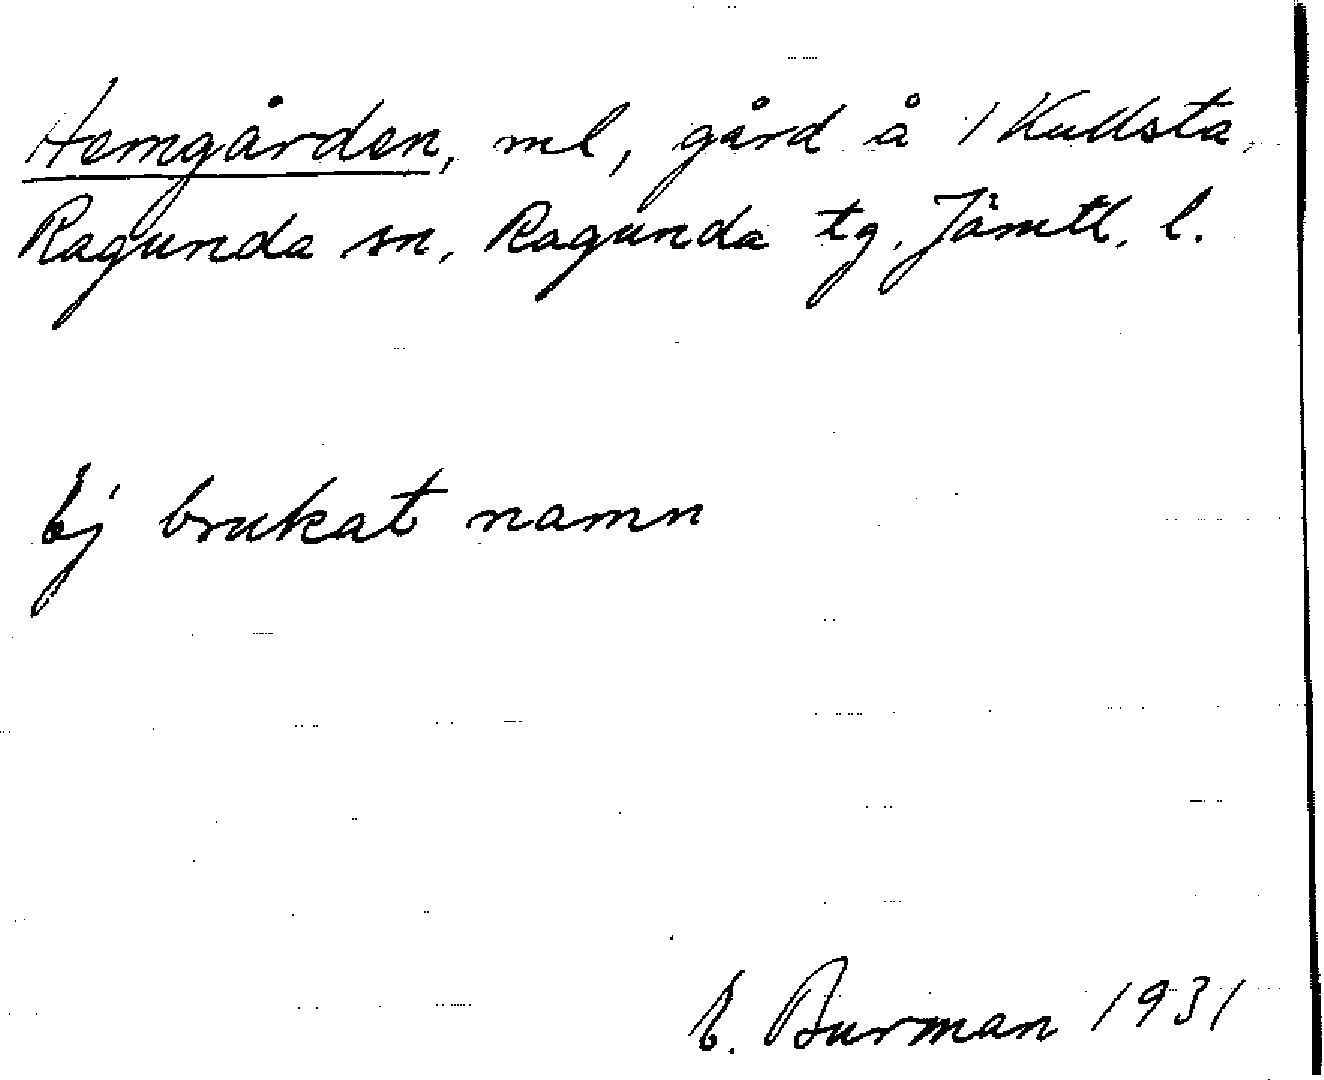 Hemgården, ml, gård å 1 Kullsta,
Ragunda sn, Ragunda tg, Jämtl. l.
Ej brukat namn
E. Burman 1931